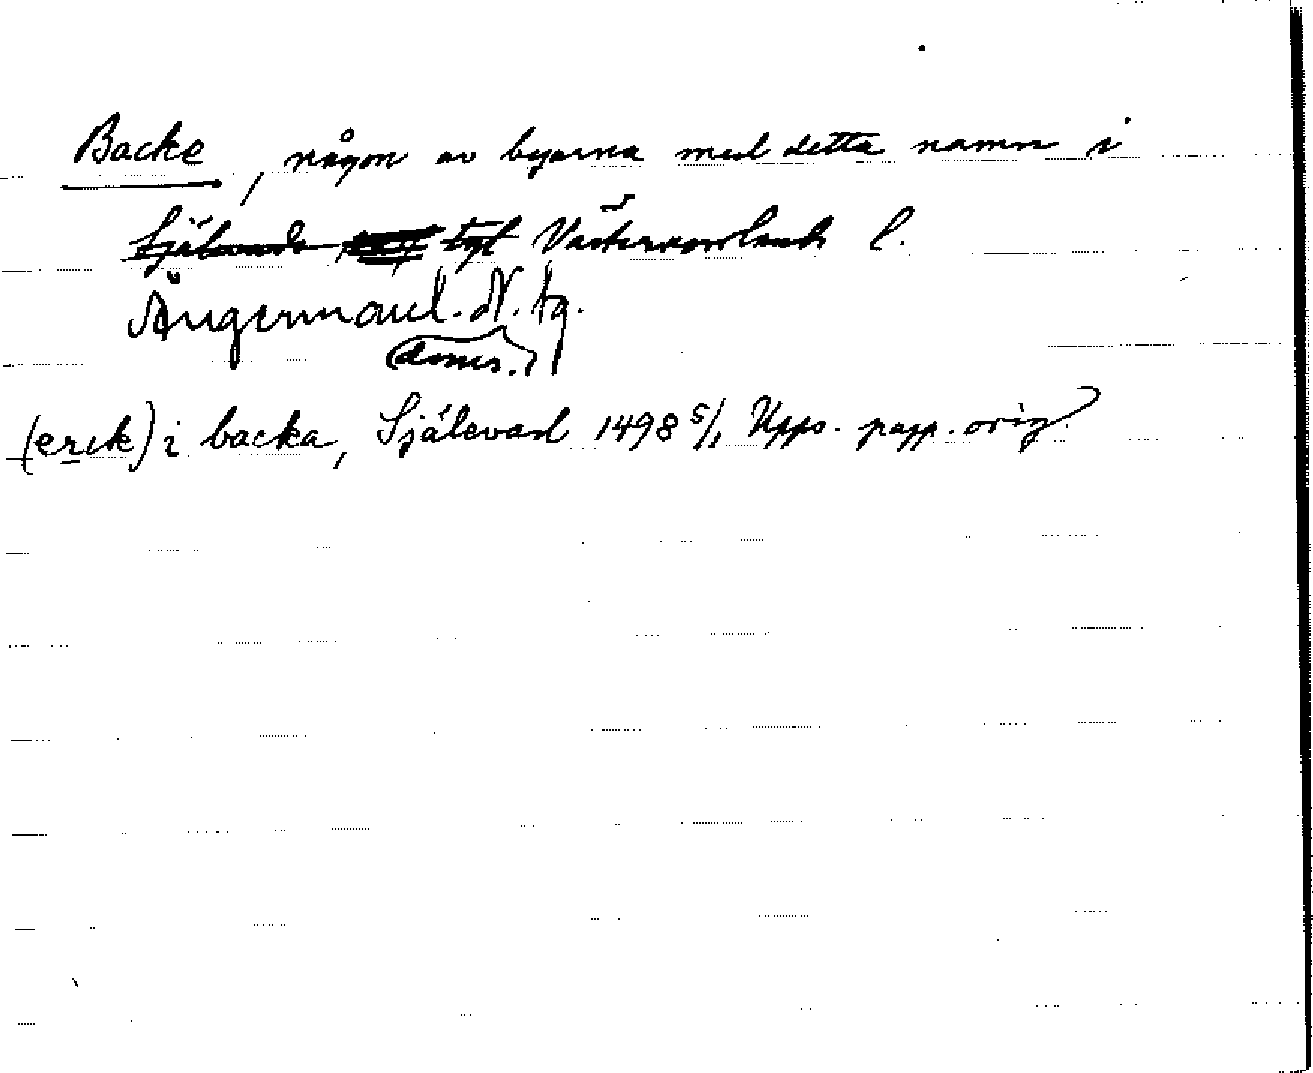 Backe, någon av byarna med detta namn i
Själevads tgl Västernorrlands l.
Ångermanl. N. tg.
(doms.)
(erik) i backa, Själevad 1498 5/1 Upps. papp. orig.